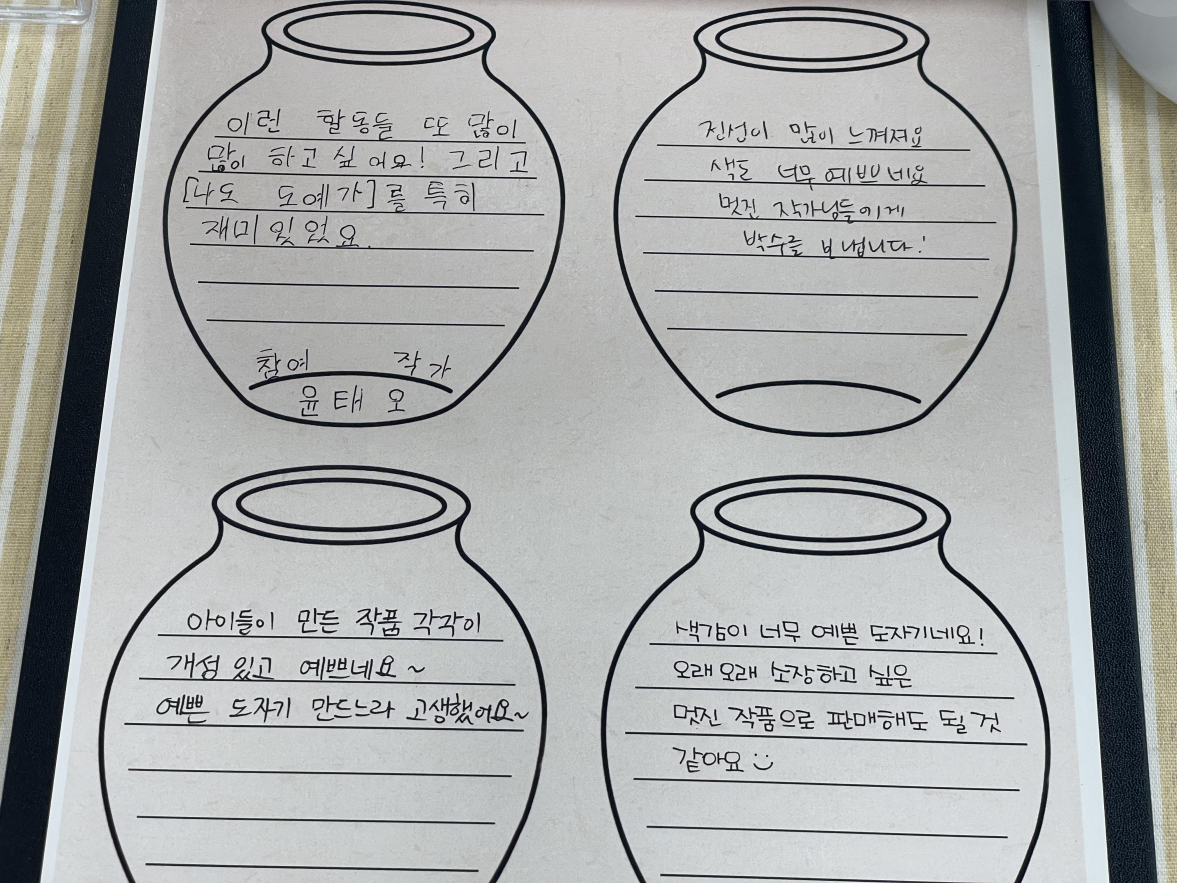 이런 활동들 또 많이
많이 하고 싶어요! 그리고
[나도 도예가]를 특히
재미있었요.
참여 작가
윤태오
진선이 많이 느껴져요
색도 너무 예쁘네요
멋진 작가님들에게
박수를 보냅니다!
아이들이 만든 작품 각각이
개성 있고 예쁘네요~
예쁜 도자기 만드느라 고생했어요~
색감이 너무 예쁜 도자기네요!
오래오래 소장하고 싶은
멋진 작품으로 판매해도 될 것
같아요 :)